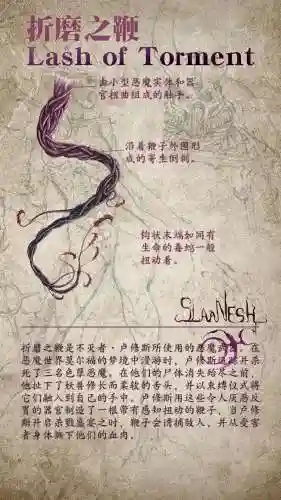 折磨之鞭
Lash of Torment
由小型恶魔实体和器
官扭曲组成的触手。
沿着鞭子外围形
成的寄生倒刺。
钩状末端如同有
生命的毒蛇一般
扭动着。
SLAANESH
折磨之鞭是不灭者·卢修斯所使用的恶魔武器。在
恶魔世界莫尔福的梦境中漫游时，卢修斯追踪并杀
死了三名色孽恶魔。在他们的尸体消失殆尽之前，
他扯下了妖兽修长而柔软的舌头，并以束缚仪式将
它们融入到自己的手中。卢修斯用这些令人厌恶反
胃的器官制造了一根带有感知扭动的鞭子，当卢修
斯开启杀戮盛宴之时，鞭子会诱捕敌人，并从受害
者身体撕下他们的血肉。